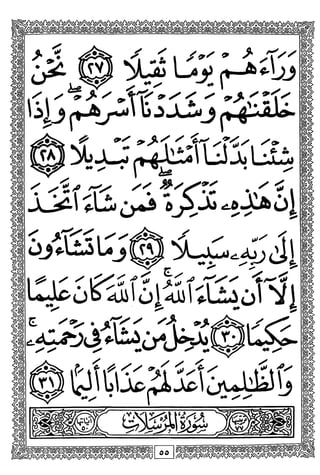 وَرَآءَهُمْ يَوْمًا ثَقِيلًا ٢٧ نَّحْنُ
خَلَقْنَٰهُمْ وَشَدَدْنَآ أَسْرَهُمْ ۖ وَإِذَا
شِئْنَا بَدَّلْنَآ أَمْثَٰلَهُمْ تَبْدِيلًا ٢٨
إِنَّ هَٰذِهِۦ تَذْكِرَةٌ ۖ فَمَن شَآءَ ٱتَّخَذَ
إِلَىٰ رَبِّهِۦ سَبِيلًا ٢٩ وَمَا تَشَآءُونَ
إِلَّآ أَن يَشَآءَ ٱللَّهُ ۚ إِنَّ ٱللَّهَ كَانَ عَلِيمًا
حَكِيمًا ٣٠ يُدْخِلُ مَن يَشَآءُ فِى رَحْمَتِهِۦ ۚ
وَٱلظَّٰلِمِينَ أَعَدَّ لَهُمْ عَذَابًا أَلِيمًۢا ٣١
سُورَةُ المُرْسَلَات
٥٥